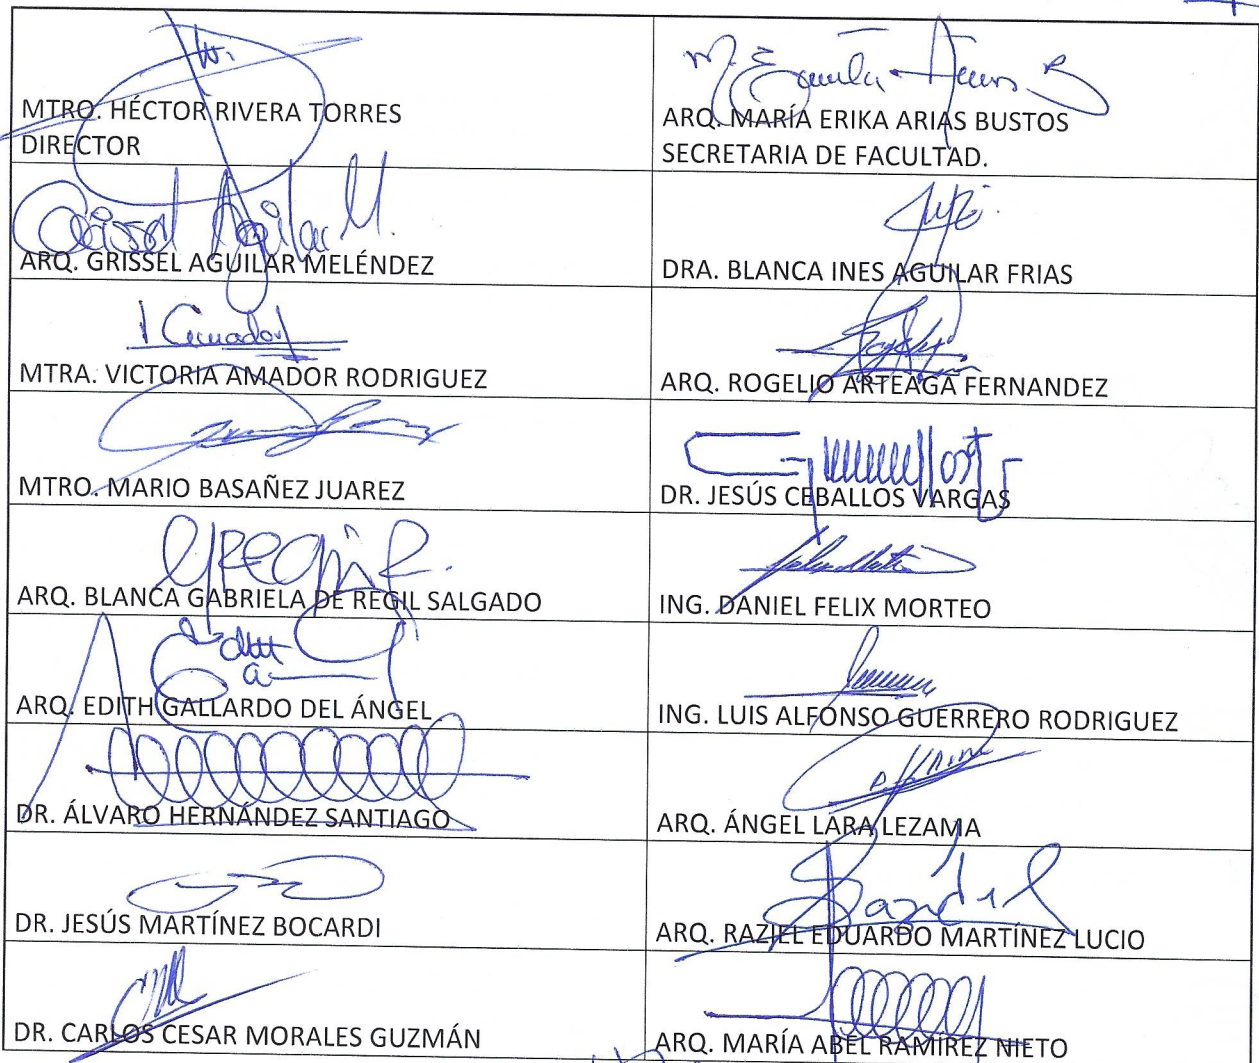 MTRO. HÉCTOR RIVERA TORRES
DIRECTOR
ARQ. MARÍA ERIKA ARIAS BUSTOS
SECRETARIA DE FACULTAD.
Grissel Aguilar M.
ARQ. GRISSEL AGUILAR MELÉNDEZ
DRA. BLANCA INES AGUILAR FRIAS
Amador
MTRA. VICTORIA AMADOR RODRIGUEZ
ARQ. ROGELIO ARTEAGA FERNANDEZ
MTRO. MARIO BASAÑEZ JUAREZ
DR. JESÚS CEBALLOS VARGAS
ARQ. BLANCA GABRIELA DE REGIL SALGADO
ING. DANIEL FELIX MORTEO
ARQ. EDITH GALLARDO DEL ÁNGEL
ING. LUIS ALFONSO GUERRERO RODRIGUEZ
DR. ÁLVARO HERNÁNDEZ SANTIAGO
ARQ. ÁNGEL LARA LEZAMA
DR. JESÚS MARTÍNEZ BOCARDI
ARQ. RAZIEL EDUARDO MARTÍNEZ LUCIO
DR. CARLOS CESAR MORALES GUZMÁN
ARQ. MARÍA ABEL RAMÍREZ NIETO